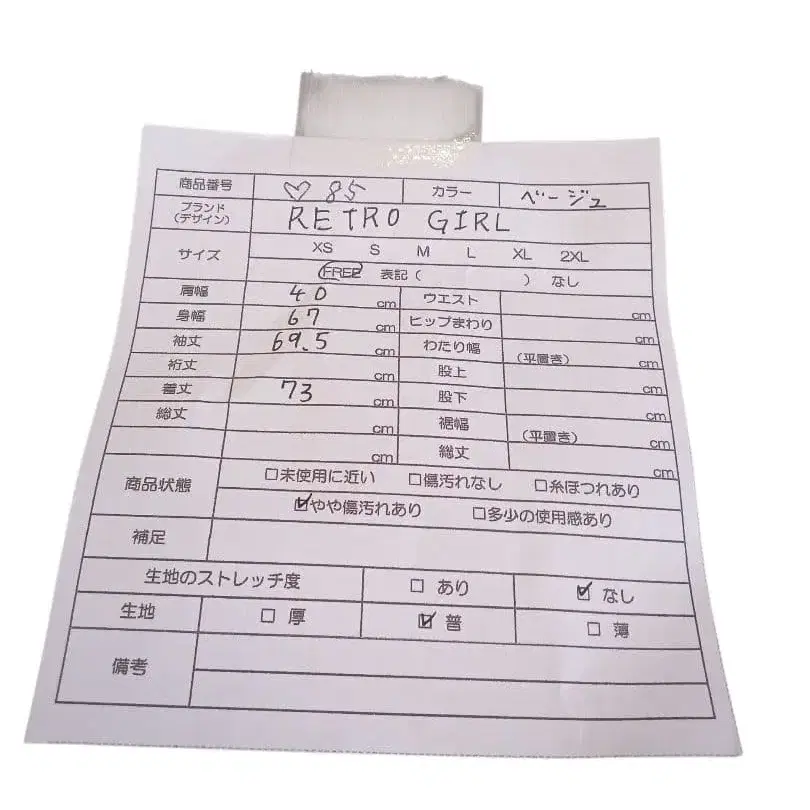 商品番号 ♡85 カラー ベージュ
ブランド
(デザイン) RETRO GIRL
サイズ XS S M L XL 2XL
FREE 表記( ) なし
肩幅 40 cm ウエスト cm
身幅 67 cm ヒップまわり cm
袖丈 69.5 cm わたり幅 (平置き) cm
裄丈 cm 股上 cm
着丈 73 cm 股下 cm
総丈 cm 裾幅 (平置き) cm
cm 総丈 cm
商品状態 □未使用に近い □傷汚れなし □糸ほつれあり
☑やや傷汚れあり □多少の使用感あり
補足
生地のストレッチ度 □ あり ☑ なし
生地 □ 厚 ☑ 普 □ 薄
備考